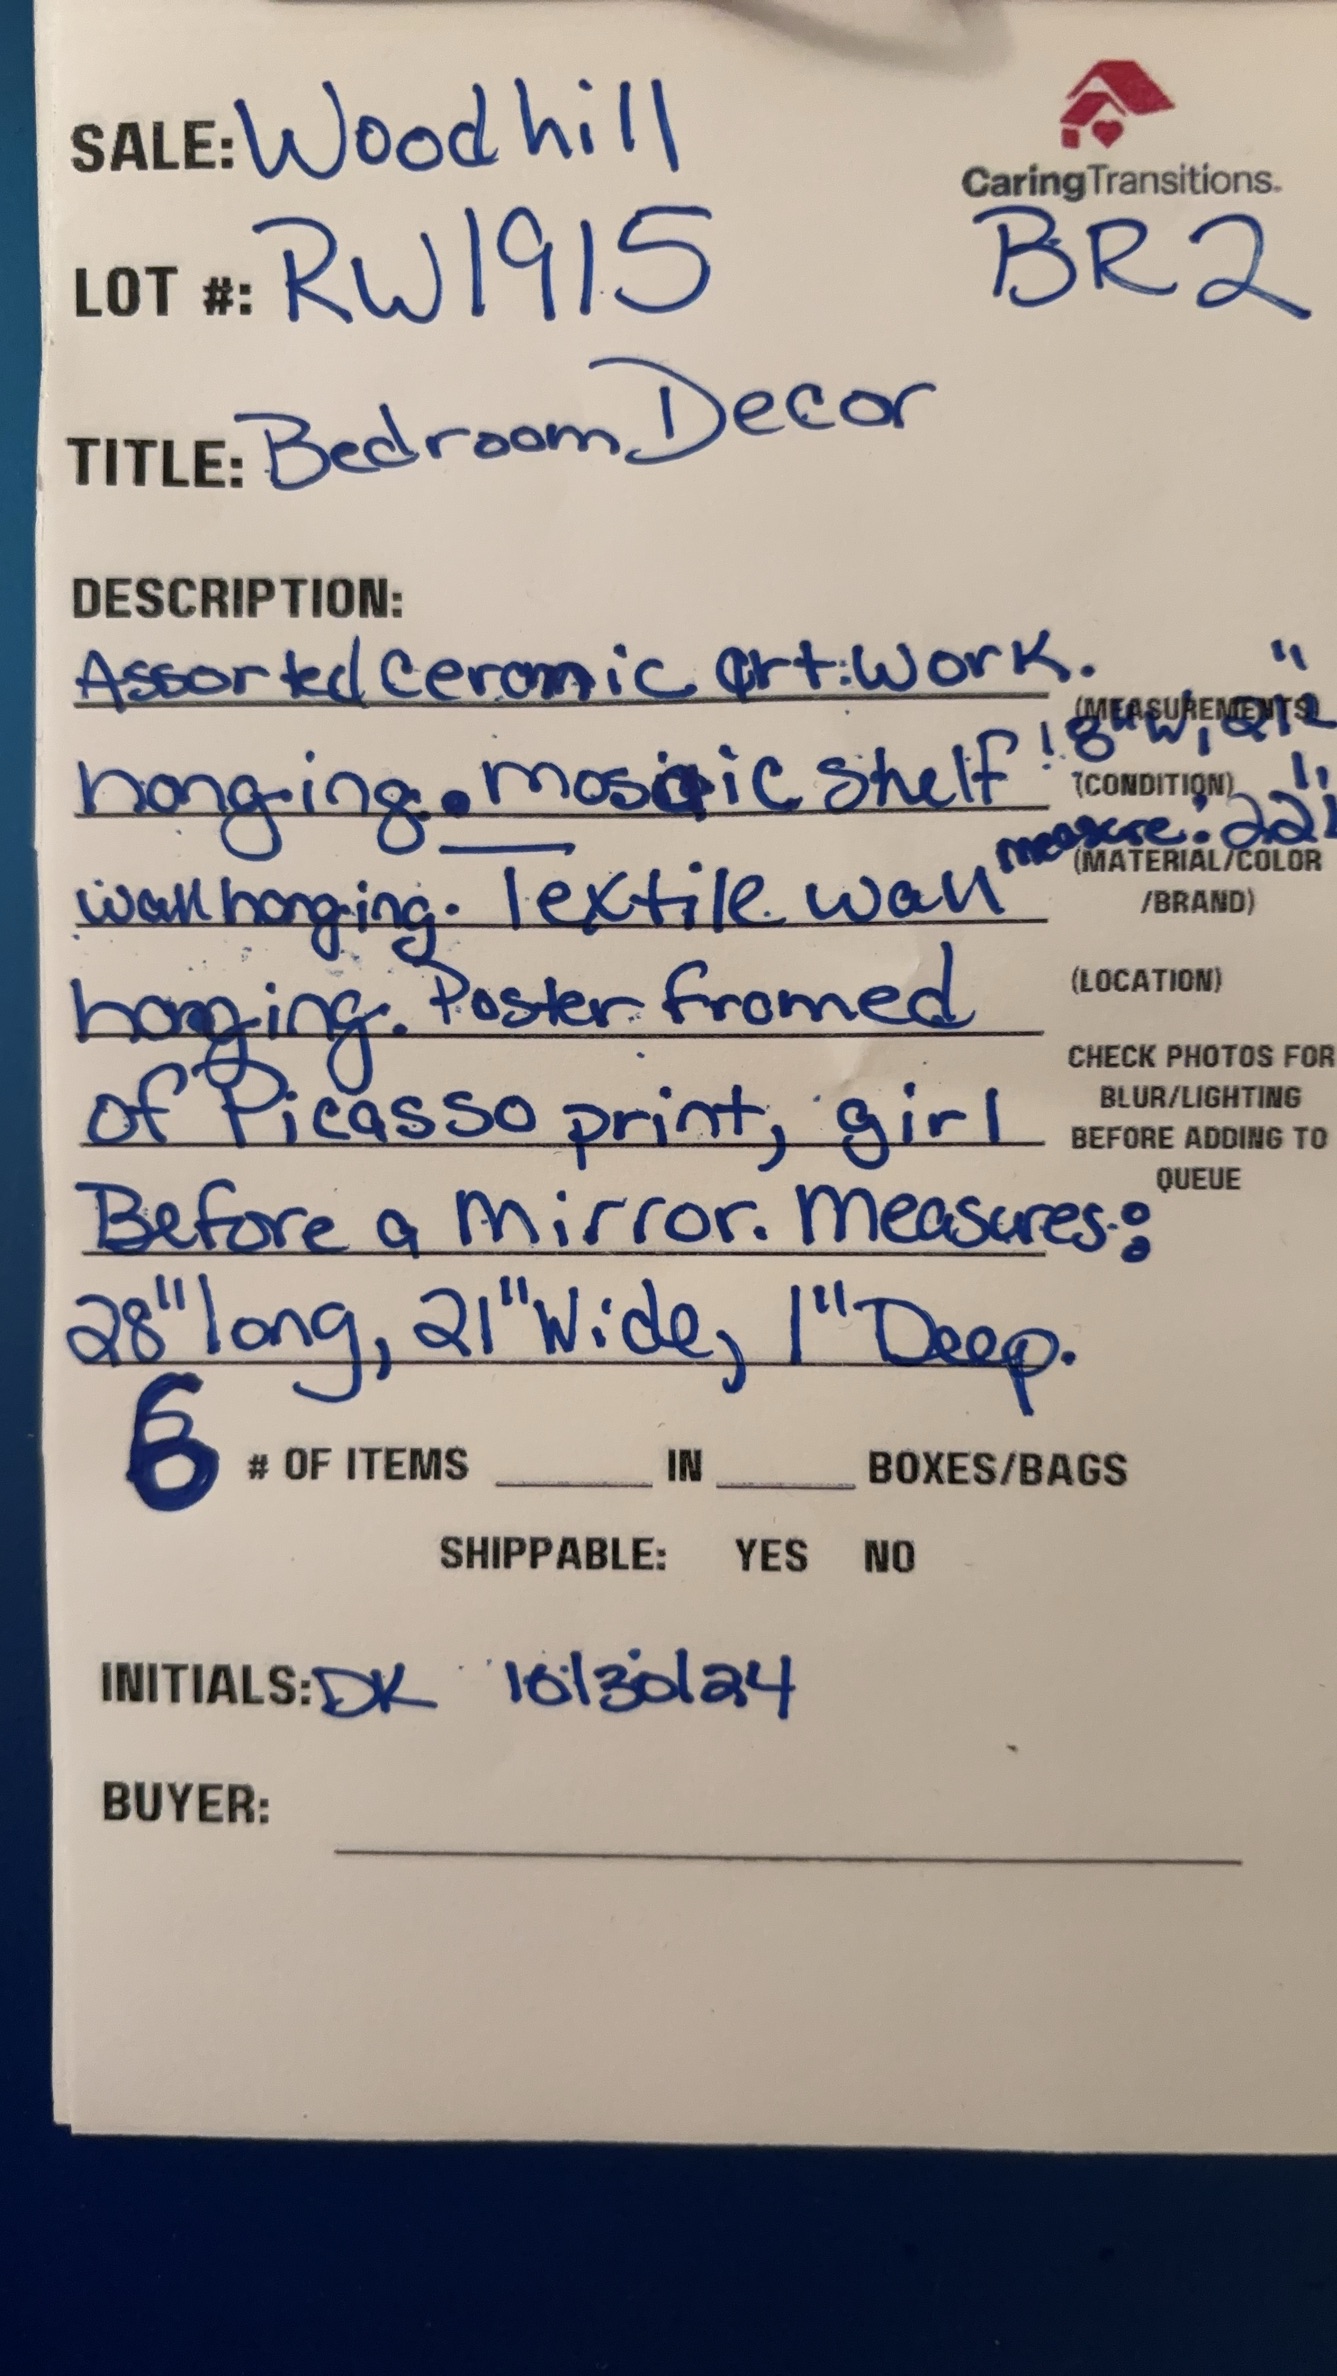 SALE: Woodhill
CaringTransitions.
LOT #: RW1915 BR2
TITLE: Bedroom Decor
DESCRIPTION:
Assorted ceramic artwork.
(MEASUREMENTS)
hanging. mosaic shelf
(CONDITION)
measure:
(MATERIAL/COLOR
/BRAND)
wall hanging. Textile wall
(LOCATION)
hanging. Poster framed
CHECK PHOTOS FOR
BLUR/LIGHTING
BEFORE ADDING TO
QUEUE
of Picasso print, girl
Before a mirror. Measures:
28" long, 21" Wide, 1" Deep.
6 # OF ITEMS IN BOXES/BAGS
SHIPPABLE: YES NO
INITIALS: DK 10/30/24
BUYER: